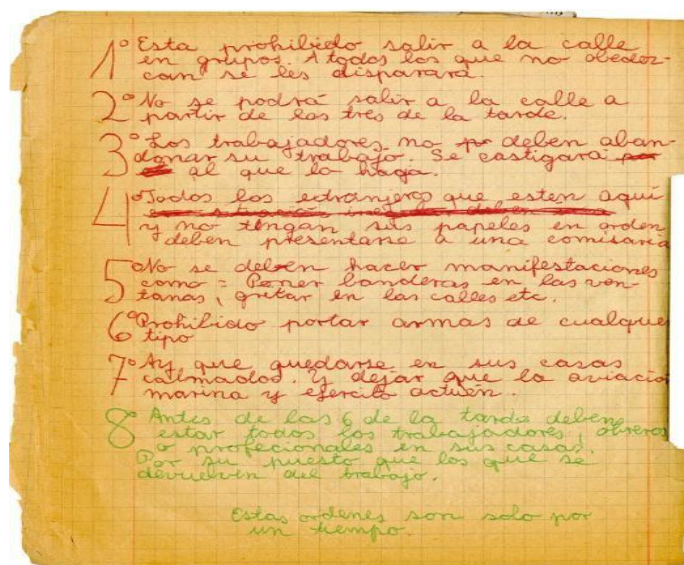 1º Esta prohibido salir a la calle
en grupos. A todos los que no obedez-
can se les disparará.
2º No se podrá salir a la calle a
partir de las tres de la tarde.
3º Los trabajadores no deben aban-
donar su trabajo. Se castigará
al que lo haga.
4º Todos los extranjeros que esten aquí
y no tengan sus papeles en orden
deben presentarse a una comisaria
5º No se deben hacer manifestaciones
como = Poner banderas en las ven-
tanas, gritar en las calles etc.
6º Prohibido portar armas de cualque
tipo
7º Ay que quedarse en sus casas
calmados. Y dejar que la aviacio
marina y ejercito actuén.
8º Antes de las 6 de la tarde deben
estar todos los trabajadores, obreros
o profecionales en sus casas.
Por su puesto que los que se
devuelven del trabajo.
Estas ordenes son solo por
un tiempo.